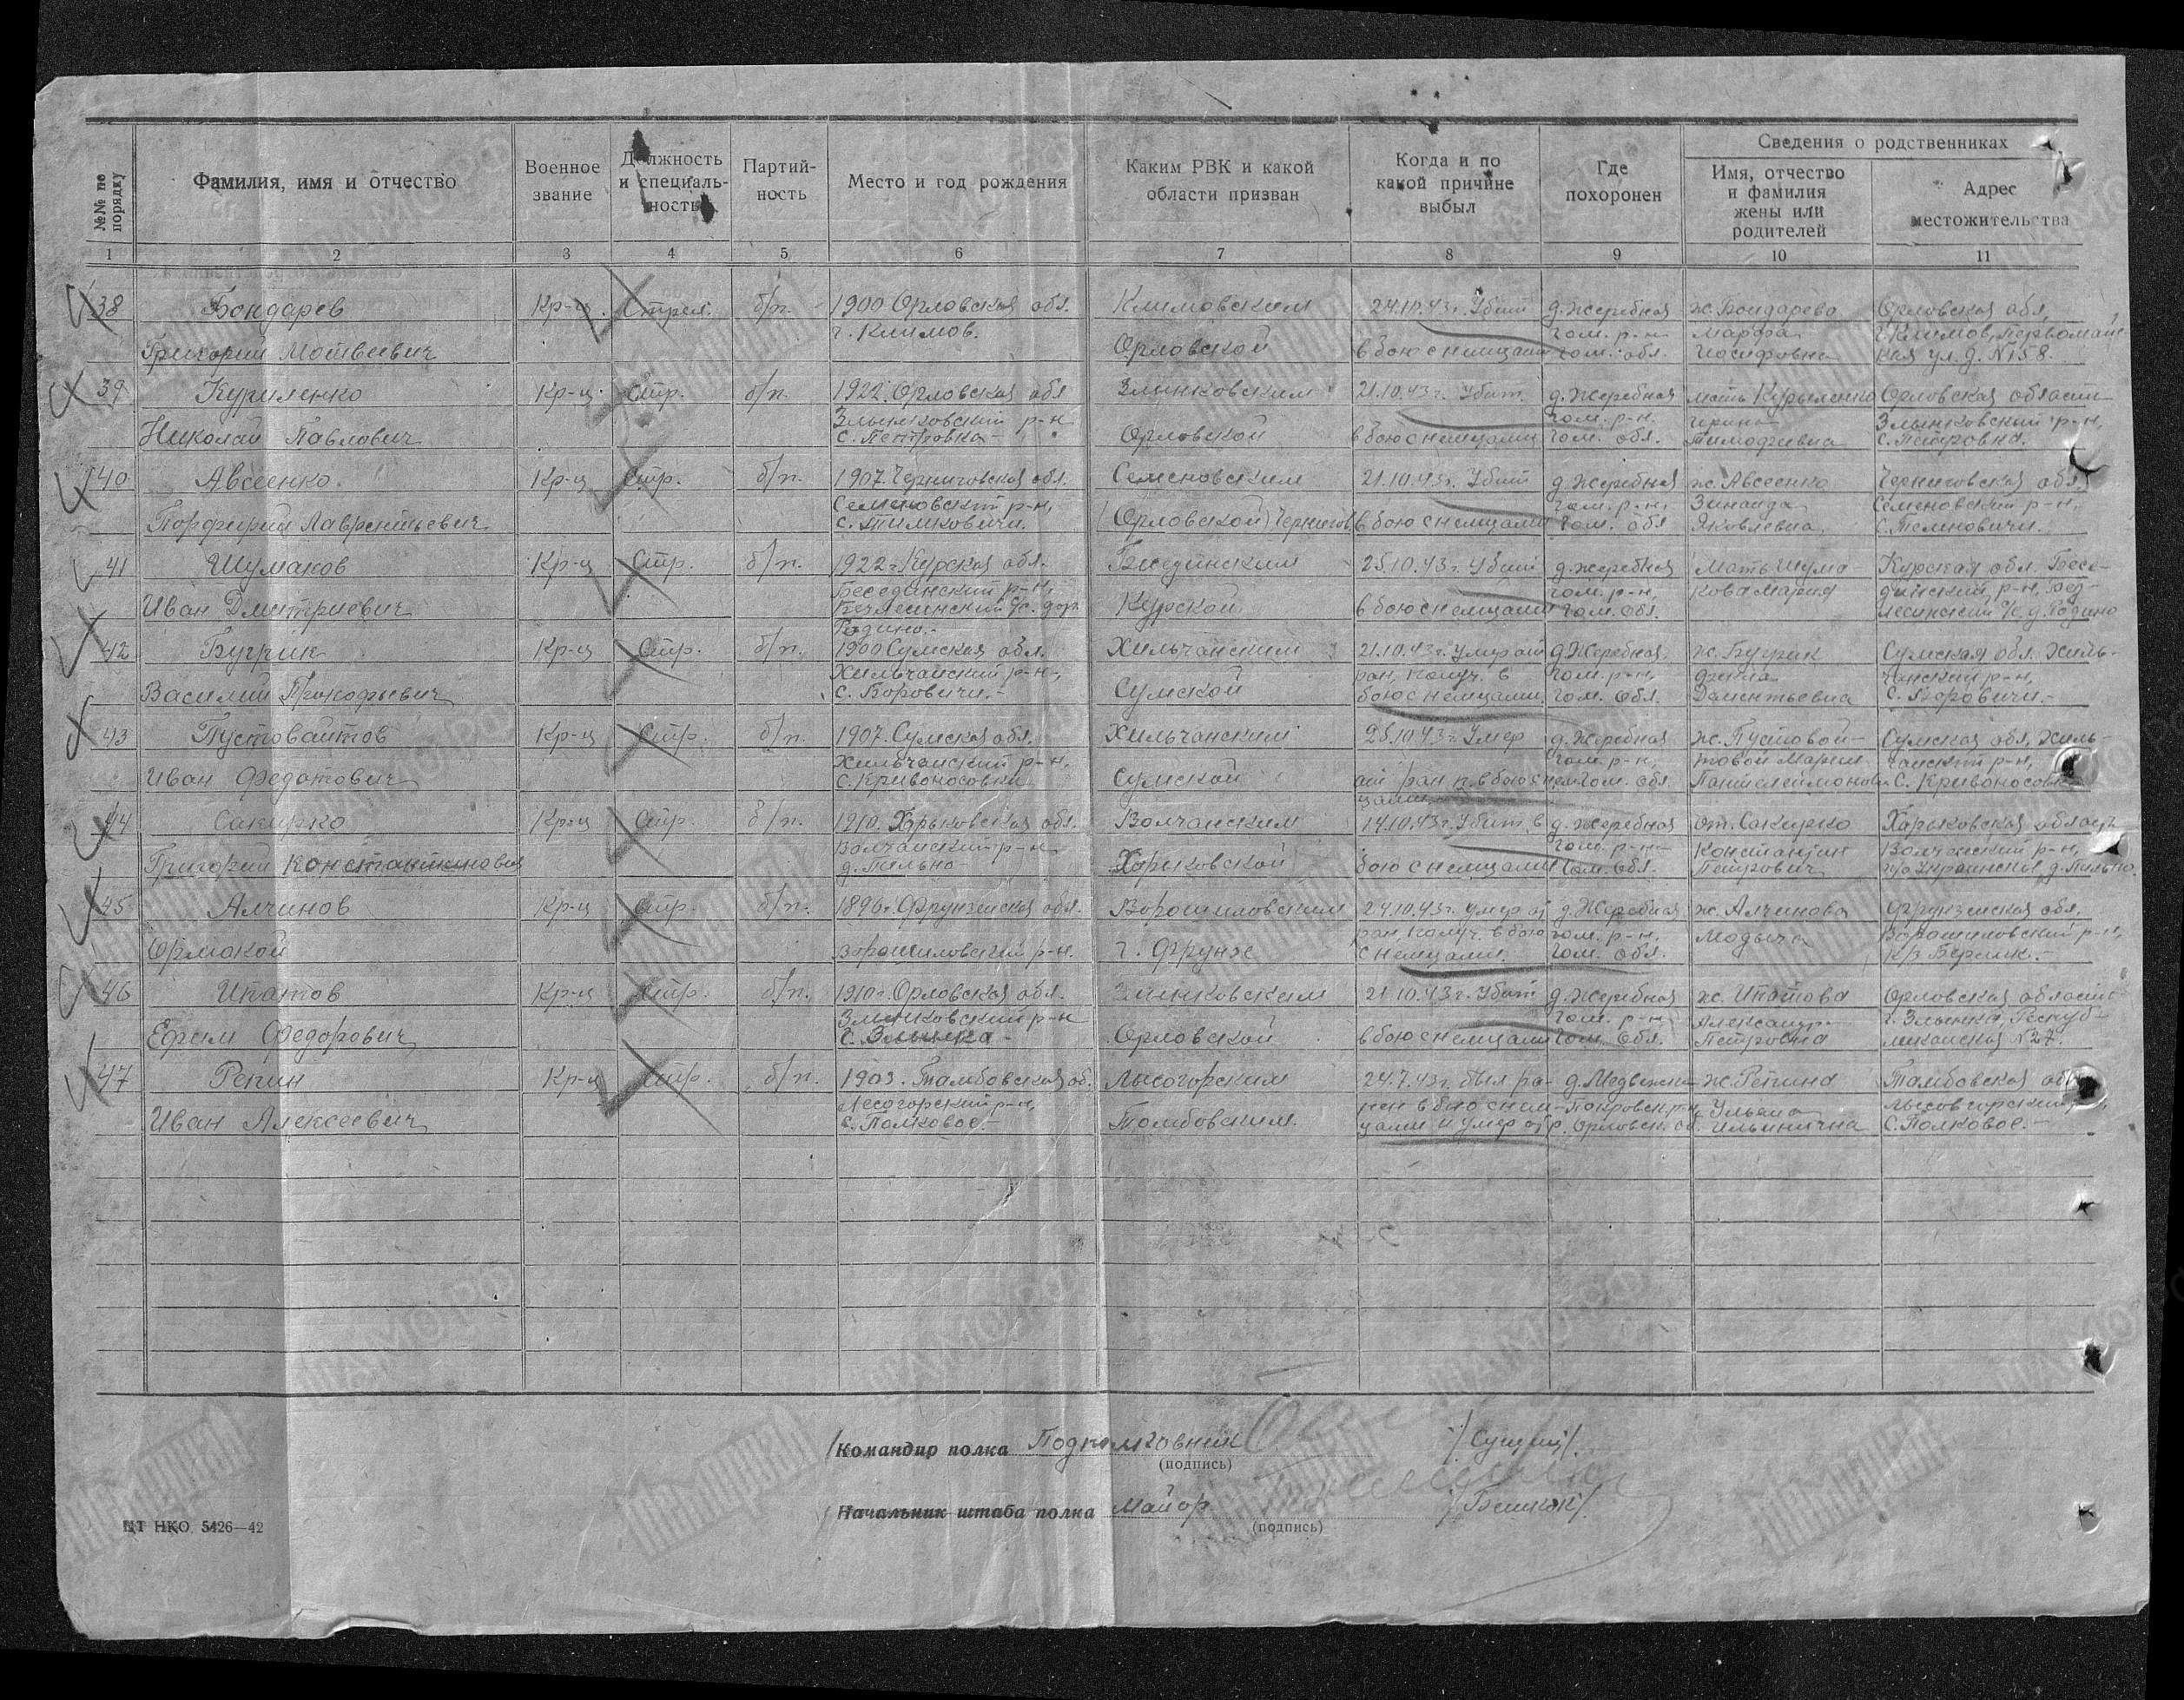 Сведения о родственниках
№№ по порядку
Фамилия, имя и отчество
Военное звание
Должность и специальность
Партийность
Место и год рождения
Каким РВК и какой области призван
Когда и по какой причине выбыл
Где похоронен
Имя, отчество и фамилия жены или родителей
Адрес местожительства
1 2 3 4 5 6 7 8 9 10 11
38 Бондарев Кр-ц. Стрел. б/п. 1900 Орловская обл. Климовским 24.10.43г. Убит д. Жеребная ж. Бондарева Орловская обл,
г. Климов. гом. р-н Марфа г. Климов, Первомайс-
Григорий Матвеевич Орловской в бою с немцами гом. обл. Иосифовна кая ул. д. №158.
39 Куриленко Кр-ц. Стр. б/п. 1922. Орловская обл Злынковским 21.10.43г. Убит д. Жеребная мать Курыленко Орловская область
Злынковский р-н гом. р-н. Ирина Злынковский р-н,
Николай Павлович с. Петровка Орловской в бою с немцами гом. обл. Тимофеевна с. Петровка.
40 Авсеенко. Кр-ц Стр. б/п. 1907. Черниговская обл. Семеновским 21.10.43г. Убит д. Жеребная ж. Авсеенко Черниговская обл,
Семеновский р-н, гом. р-н, Зинаида Семеновский р-н,
Порфирий Лаврентьевич (Орловской) Чернигов в бою с немцами гом. обл Яковлевна
41 Шумаков Кр-ц Стр. б/п. 1922г. Курская обл. 25.10.43г. Убит д. Жеребная Мать Шума- Курская обл. Бесе-
Беседанский р-н, гом. р-н, кова Мария динский р-н,
Иван Дмитриевич Курской в бою с немцами гом. обл.
Родино.-
42 Бугрик Кр-ц Стр. б/п. 1900 Сумская обл. Хильчанский 21.10.43г. умер от д. Жеребная. ж. Бугрик Сумская обл. Хиль-
Хильчанский р-н, ран, получ. в гом. р-н, чанский р-н,
Василий Прокофьевич Сумской бою с немцами гом. обл.
43 Пустовайтов Кр-ц Стр. б/п. 1907. Сумская обл. Хильчанский 25.10.43г. Умер д. Жеребная ж. Пустовой- Сумская обл, Хиль-
Хильчанский р-н. гом. р-н, товой Мария чанский р-н,
Иван Федотович с. Кривоносовки Сумской от ран п. в бою с нем- гом. обл. Пантелеймоновн с. Кривоносовка
цами.
44 Сакирко Кр-ц Стр. б/п. 1910. Харьковская обл. Волчанским 14.10.43г. Убит в д. Жеребная от. Сакирко Харьковская область
Волчанский р-н гом. р-н Константин Волчанский р-н,
Григорий Константинович д. Пильно Харьковской бою с немцами гом. обл. Петрович д. Пильно.
45 Алчинов Кр-ц Стр. б/п. 1896г. Фрунзенская обл. Ворошиловским 24.10.43г. умер от д. Жеребная ж. Алчинова Фрунзенская обл.
ран, получ. в бою гом. р-н, Ворошиловский р-н,
Ормокой ворошиловский р-н. г. Фрунзе с немцами. гом. обл.
46 Ипатов Кр-ц Стр. б/п. 1910г. Орловская обл. Злынковским 21.10.43г. Убит д. Жеребная ж. Ипатова Орловская область
Злынковский р-н гом. р-н Александр- г. Злынка, Респуб-
Ефим Федорович с. Злынка Орловской в бою с немцами гом. обл. Петровна ликанская №27.
47 Репин Кр-ц Стр. б/п. 1903. Тамбовская об. Лысогорским 24.7.43г. был ра- ж. Репина Тамбовская об
Лесогорский р-н, нен в бою с нем- Покровск р-н Ульяна
Иван Алексеевич с. Полковое.- Тамбовским. цами и умер от р. Орловск. об. Ильинична с. Полковое.-
Командир полка Подполковник /Сущий/.
(подпись)
Начальник штаба полка Майор
(подпись)
ЦТ НКО 5426—42